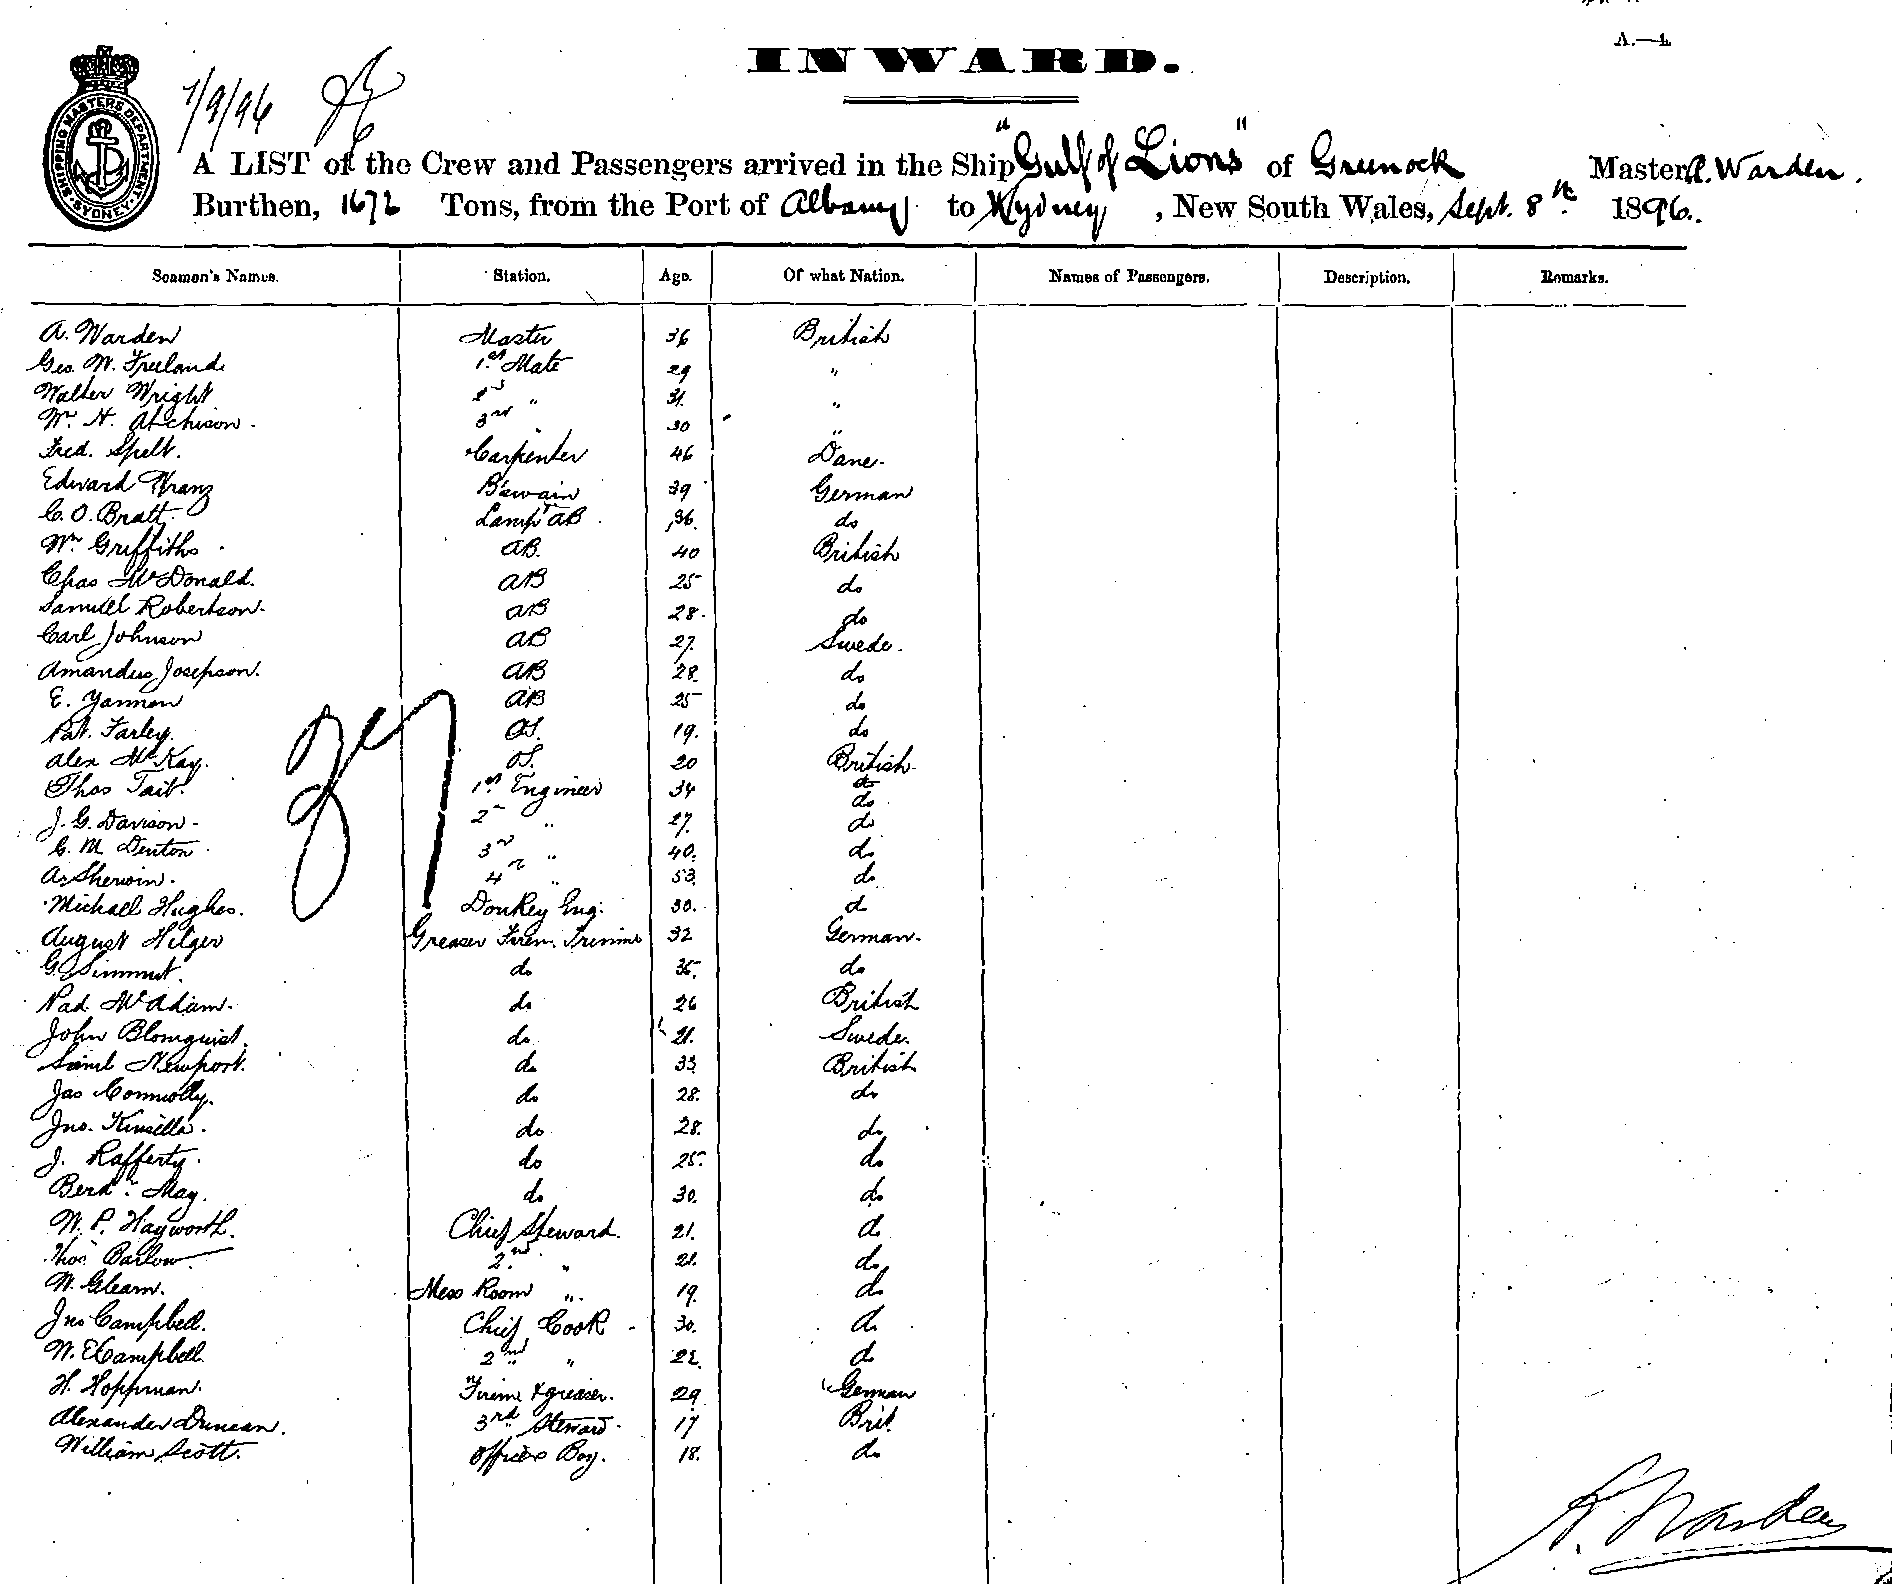 A.—4.
INWARD.
SHIPPING MASTERS DEPARTMENT SYDNEY
7/9/96
A LIST of the Crew and Passengers arrived in the Ship "Gulf of Lions" of Greenock Master A. Warden.
Burthen, 1672 Tons, from the Port of Albany to Sydney, New South Wales, Sept. 8th 1896.
Seamen's Names. Station. Age. Of what Nation. Names of Passengers. Description. Remarks.
A. Warden Master 36 British
Geo. W. Freeland 1st Mate 29 "
Walter Wright 2nd " 31 "
Wm. H. Atchison. 3rd 30 "
Fred. Spelt. Carpenter 46 Dane.
Edward Kranz B'swain 39 German
C. O. Bratt. Lampr AB 36. do
Wm. Griffiths AB. 40 British
Chas McDonald. AB 25 do
Samuel Robertson. AB 28. do
Carl Johnson AB 27. Swede.
Amandus Josepson. AB 28. do
E. Yannon AB 25 do
Pat. Farley. OS. 19. do
Alex McKay. OS. 20 British
Thos Tait. 1st Engineer 34 do
J. G. Davison. 2nd " 27. do
C. M. Denton. 3rd " 40. do
A. Sherwin. 4th " 53. do
Michael Hughes. Donkey Eng. 30. do
August Hilger Greaser Firem. Trimmr 32 German.
G. Simmut. do 35. do
Pad. McAdam. do 26 British
John Blomquist. do 21. Swede.
Saml Newport. do 33 British
Jas Connolly. do 28. do
Jno. Kinsella. do 28. do
J. Rafferty. do 25. do
Berd. May. do 30. do
W. P. Hayworth. Chief Steward. 21. do
Thos. Barlow. 2nd " 21. do
W. Glearn. Mess Room " 19. do
Jno Campbell. Chief Cook 30. do
W. E Campbell. 2nd " 22. do
H. Hoppman. Firem & greaser. 29. German
Alexander Duncan. 3rd Steward. 17 Brit.
William Scott. Officers Boy. 18. do
37
A. Warden